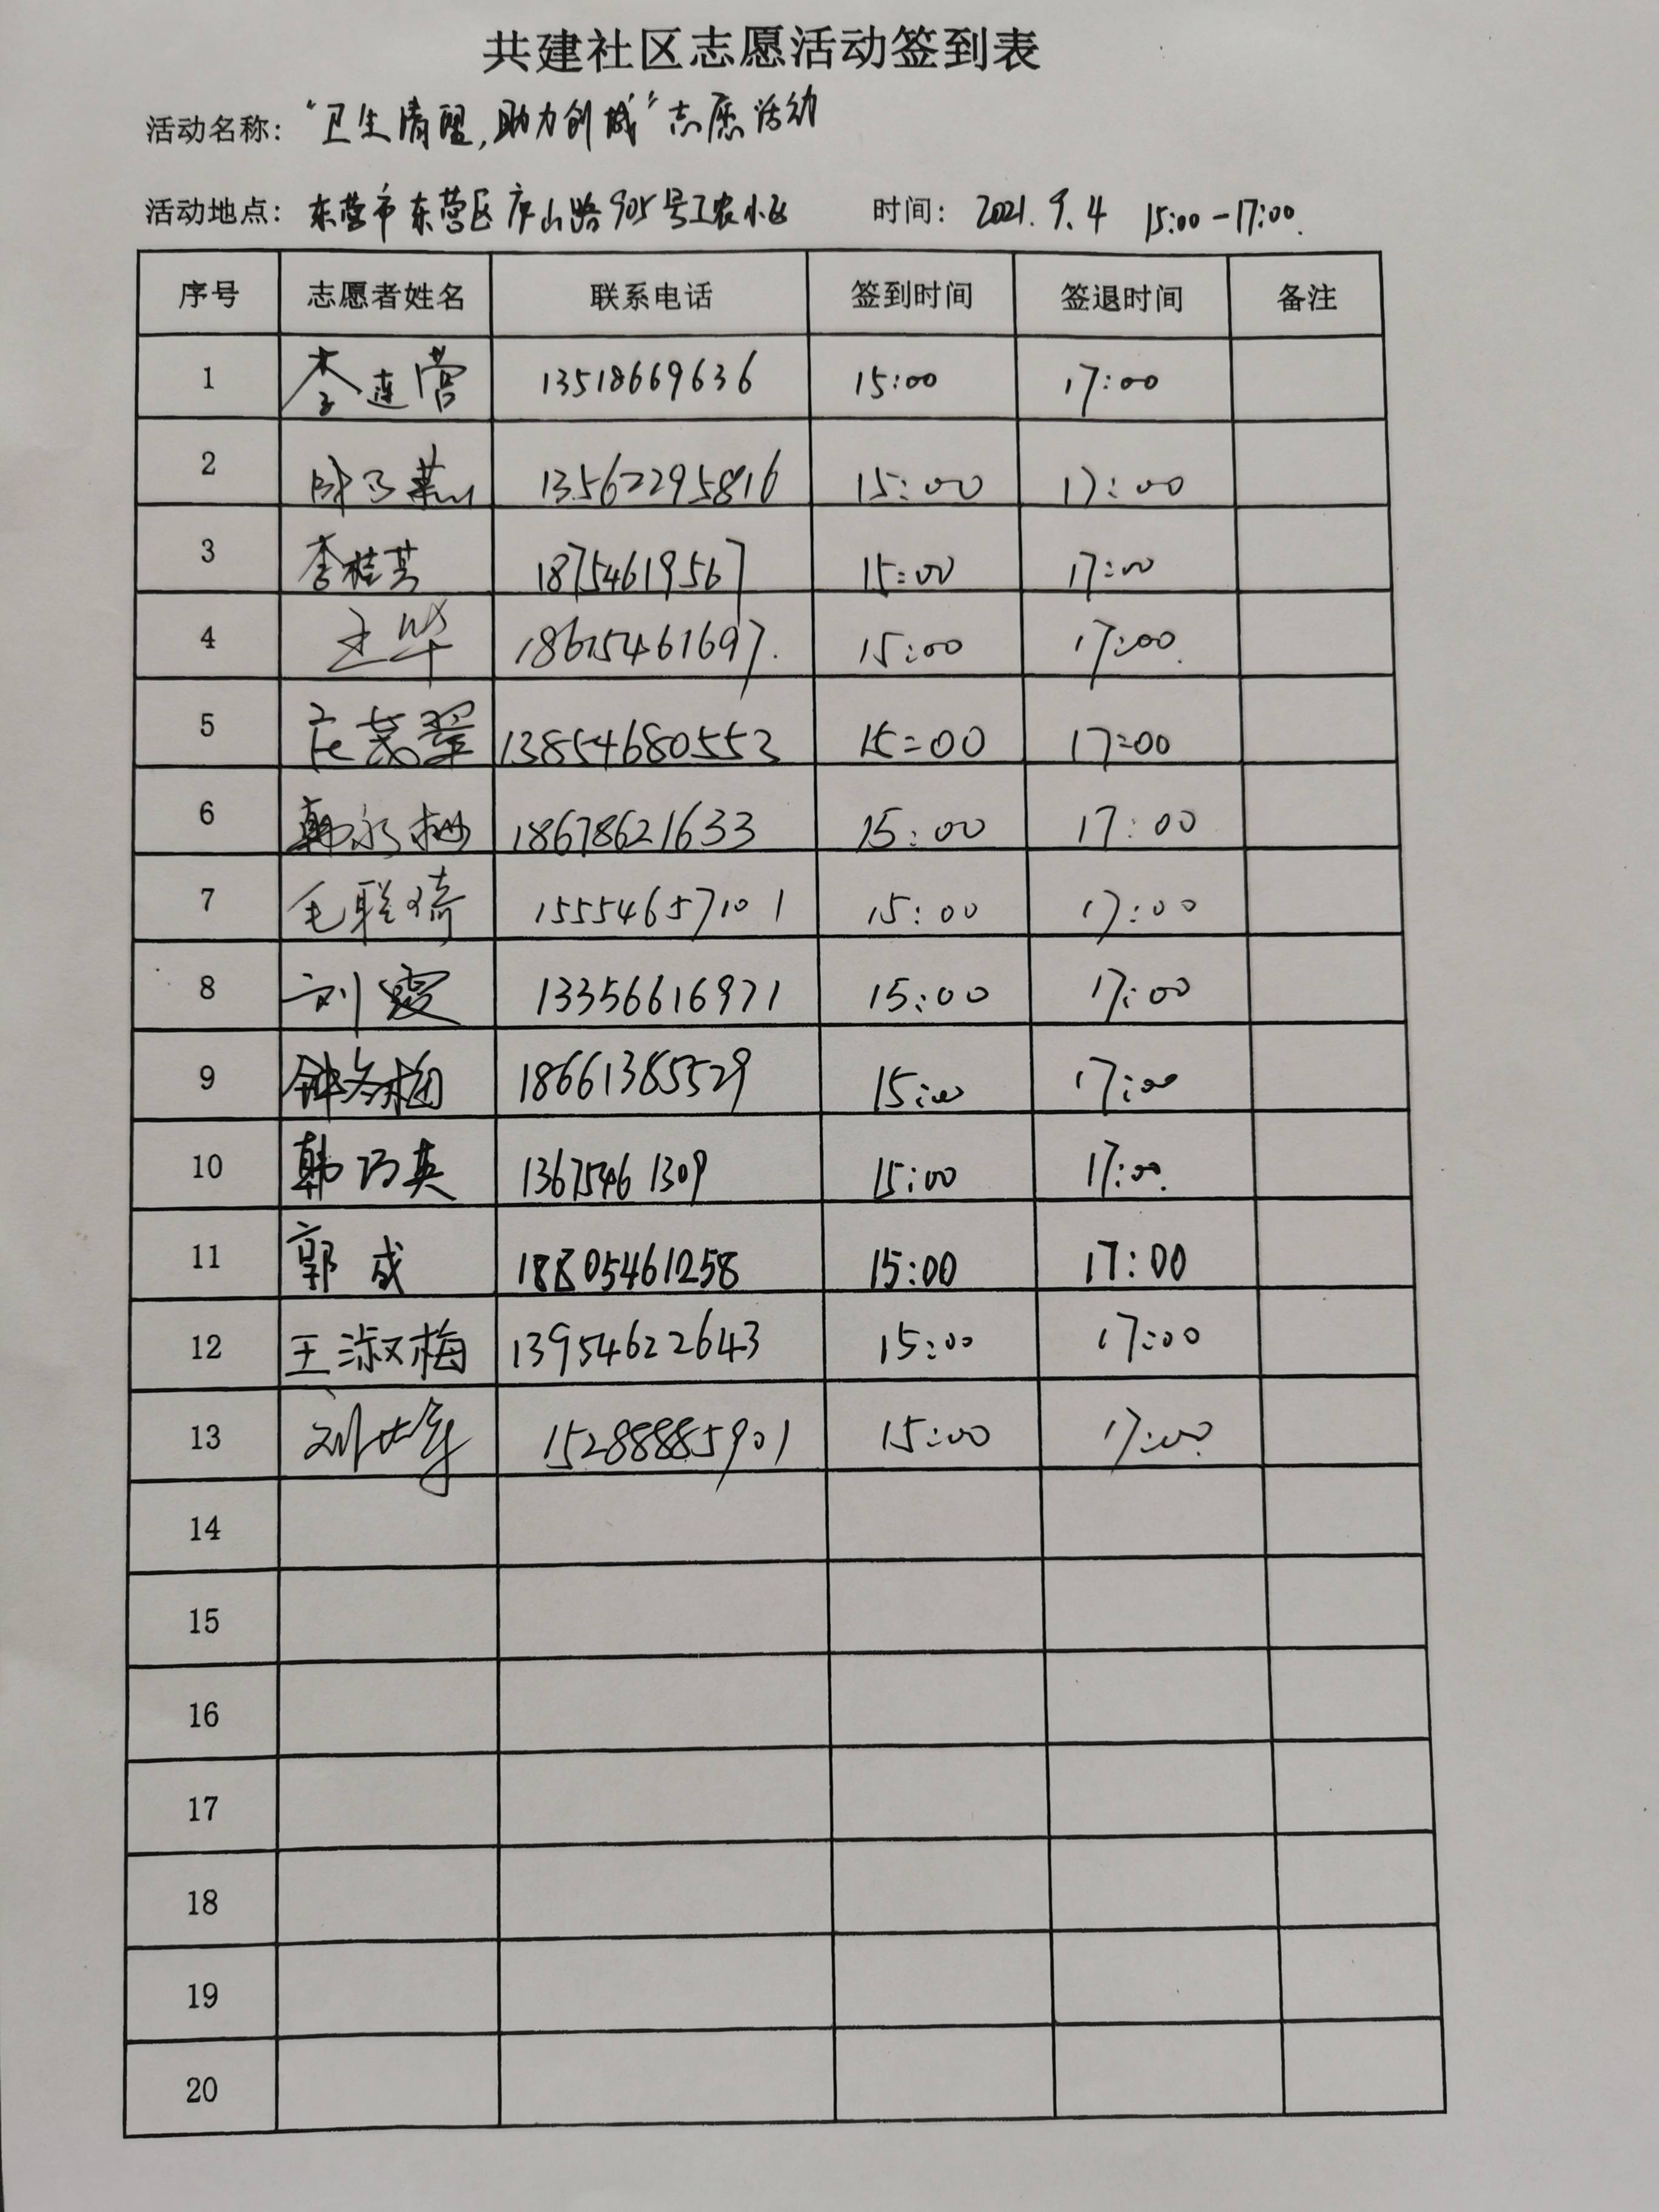 共建社区志愿活动签到表
活动名称: "卫生清盟,助力创城"志愿活动
活动地点: 东营市东营区庐山路905号工农小区 时间: 2021.9.4 15:00-17:00.
序号 志愿者姓名 联系电话 签到时间 签退时间 备注
1 李连营 13518669636 15:00 17:00
2 13562295816 15:00 17:00
3 李桂芳 18754619567 15:00 17:00
4 王华 18615461697. 15:00 17:00.
5 13854680553 15:00 17:00
6 韩永梅 18678621633 15:00 17:00
7 毛联琦 15554657101 15:00 17:00
8 刘霞 13356616971 15:00 17:00
9 钟冬梅 18661385529 15:00 17:00
10 韩巧英 13675461309 15:00 17:00.
11 郭成 18805461258 15:00 17:00
12 王淑梅 13954622643 15:00 17:00
13 15288885901 15:00 17:00.
14
15
16
17
18
19
20